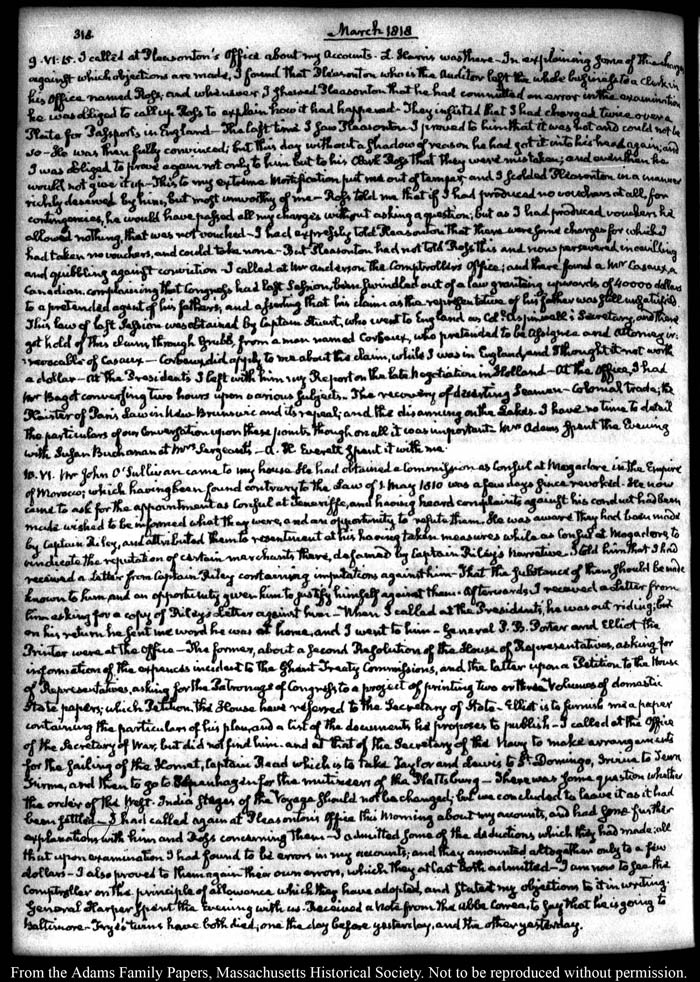 318. March 1818
9. VI: 15. I called at Pleasonton's Office about my Accounts. L. Harris was there – In explaining some of the charges
against which objections are made, I found that Pleasonton who is the Auditor left the whole business to a Clerk in
his Office named Ross, and whenever I shewed Pleasonton that he had committed an error in the examination
he was obliged to call up Ross to explain how it had happened – They insisted that I had charged twice over a
Plate for Passports in England – The last time I saw Pleasonton I proved to him that it was not and could not be
so – He was then fully convinced; but this day without a shadow of reason he had got it into his head again; and
I was obliged to prove again not only to him but to his Clerk Ross that they were mistaken; and even then he
would not give it up – This to my extreme Mortification put me out of temper and I scolded Pleasonton in a manner
richly deserved by him, but most unworthy of me – Ross told me that if I had produced no vouchers at all, for
contingencies, he would have passed all my charges without asking a question; but as I had produced vouchers he
allowed nothing, that was not vouched – I had expressly told Pleasonton that there were some charges for which I
had taken no vouchers, and could take none – But Pleasonton had not told Ross this and now persevered in cavilling
and quibbling against conviction – I called at Mr Anderson the Comptroller's Office; and there found a Mr Cazeaux a
Canadian complaining that Congress had last Session, been swindled out of a law granting upwards of 40000 dollars
to a pretended agent of his fathers, and asserting that his claim as the representative of his father was still unsatisfied
This law of last Session was obtained by Captain Stuart, who went to England as Col. Aspinwall's Secretary, and there
got hold of this claim, through Grubb, from a man named Corbeaux, who pretended to be Assignee and Attorney ir-
revocable of Cazeaux – Corbeaux did apply to me about this claim, while I was in England, and I thought it not worth
a dollar – At the Presidents I left with him my Report on the late Negotiation in Holland – At the Office, I had
Mr Bagot conversing two hours upon various subjects. The recovery of deserting Seamen – Colonial trade; the
Plaister of Paris Law in New Brunswic and its repeal; and the disarming on the Lakes. I have no time to detail
the particulars of our Conversation upon these points though on all it was important. Mrs Adams spent the Evening
with Susan Buchanan at Mrs Sergeant's – A. H. Everett spent it with me.
10. VI. Mr John O'Sullivan came to my house. He had obtained a Commission as Consul at Mogadore in the Empire
of Morocco; which having been found contrary to the Law of 1 May 1810 was a few days since revoked. He now
came to ask for the appointment as Consul at Teneriffe, and having heard complaints against his conduct had been
made wished to be informed what they were, and an opportunity to refute them. He was aware they had been made
by Captain Riley, and attributed them to resentment at his having taken measures while as Consul at Mogadore, to
vindicate the reputation of certain merchants there, defamed by Captain Riley's Narrative – I told him that I had
received a Letter from Captain Riley containing imputations against him – That the substance of them should be made
known to him and an opportunity given him to justify himself against them. Afterwards, I received a Letter from
him asking for a copy of Riley's Letter against him – When I called at the Presidents, he was out riding; but
on his return he sent me word he was at home, and I went to him – General P. B. Porter and Elliot the
Printer were at the Office – The former, about a second Resolution of the House of Representatives, asking for
information of the expences incident to the Ghent Treaty Commissions, and the latter upon a Petition to the House
of Representatives, asking for the Patronage of Congress to a project of printing two or three Volumes of domestic
State papers; which Petition the House have referred to the Secretary of State – Elliot is to furnish me a paper
containing the particulars of his plan, and a list of the documents he proposes to publish – I called at the Office
of the Secretary of War, but did not find him – and at that of the Secretary of the Navy to make arrangements
for the sailing of the Hornet, Captain Read which is to take Taylor and Lewis to St Domingo, Irvine to Terra
Firma, and then to go to Copenhagen for the mutineers of the Plattsburg – There was some question whether
the order of the West-India Stages of the Voyage should not be changed; but we concluded to leave it as it had
been settled – I had called again at Pleasonton's Office this Morning about my accounts, and had some further
explanations with him and Ross concerning them – I admitted some of the deductions which they had made; all
that upon examination I had found to be errors in my accounts; and they amounted altogether only to a few
dollars – I also proved to them again their own errors, which they at last both admitted – I am now to see the
Comptroller on the principle of allowance which they have adopted, and stated my objections to it in writing.
General Harper spent the Evening with us. Received a Note from the Abbe Correa, to say that he is going to
Baltimore – Fry's twins have both died, one the day before yesterday, and the other yesterday.
From the Adams Family Papers, Massachusetts Historical Society. Not to be reproduced without permission.